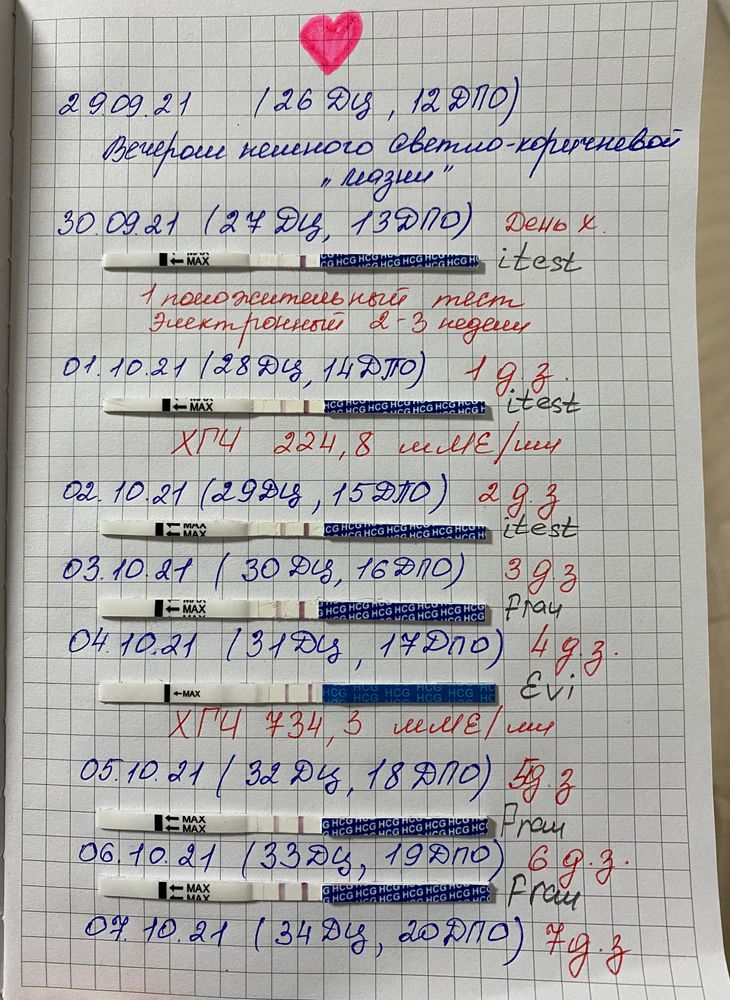 29.09.21 (26 ДЦ, 12ДПО)
Вечером немного светло-коричневой
„мазни"
30.09.21 (27 ДЦ, 13ДПО) День X.
MAX
← MAX
HCG HCG HCG HCG HCG HCG
itest
1 положительный тест
Электронный 2-3 недели
01.10.21 (28 ДЦ, 14ДПО) 1 д.з.
← MAX
HCG HCG HCG HCG HCG HCG
itest
ХГЧ 224,8 мМЕ/мл
02.10.21 (29ДЦ, 15ДПО) 2 д.з
← MAX
← MAX
HCG HCG HCG HCG HCG HCG
itest
03.10.21 (30 ДЦ, 16ДПО) 3 д.з
← MAX
← MAX
HCG HCG HCG HCG HCG HCG
Frau
04.10.21 (31 ДЦ, 17ДПО) 4 д.з.
←MAX
HCG HCG HCG HCG HCG HCG
Evi
ХГЧ 734,3 мМЕ/мл
05.10.21 (32 ДЦ, 18 ДПО) 5д.з
← MAX
← MAX
HCG HCG HCG HCG HCG HCG
Frau
06.10.21 (33ДЦ, 19ДПО) 6 д.з.
← MAX
← MAX
HCG HCG HCG HCG HCG HCG
Frau
07.10.21 (34 ДЦ, 20ДПО) 7д.з